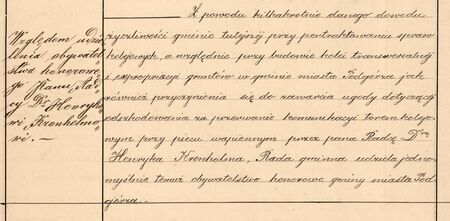 Względem udzie-
lenia obywatel-
stwa honorowe-
go Panu Rad-
cy Drs Henryko-
wi Kronhelmo-
wi. —
Z powodu kilkakrotnie danego dowodu
życzliwości gminie tutejszej przy pertraktowaniu spraw
kolejowych, a względnie przy budowie kolei transwersalnej
i expropriacyi gruntów w gminie miasta Podgórza jak
również przyczynienia się do zawarcia ugody dotyczącej
odszkodowania za przerwanie komunikacyi torem kolejo-
wym przy piecu wapiennym przez pana Radcę Dra
Henryka Kronhelma, Rada gminna udziela jedno-
myślnie temuż obywatelstwo honorowe gminy miasta Pod-
górza. —